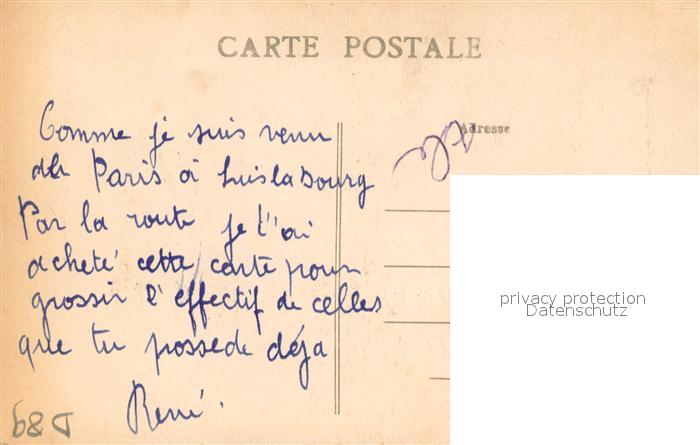 CARTE POSTALE
Comme je suis venu
de Paris à
Par la route je t'ai
acheté cette carte pour
grossir l'effectif de celles
que tu possede déja
René.
Adresse
privacy protection
Datenschutz